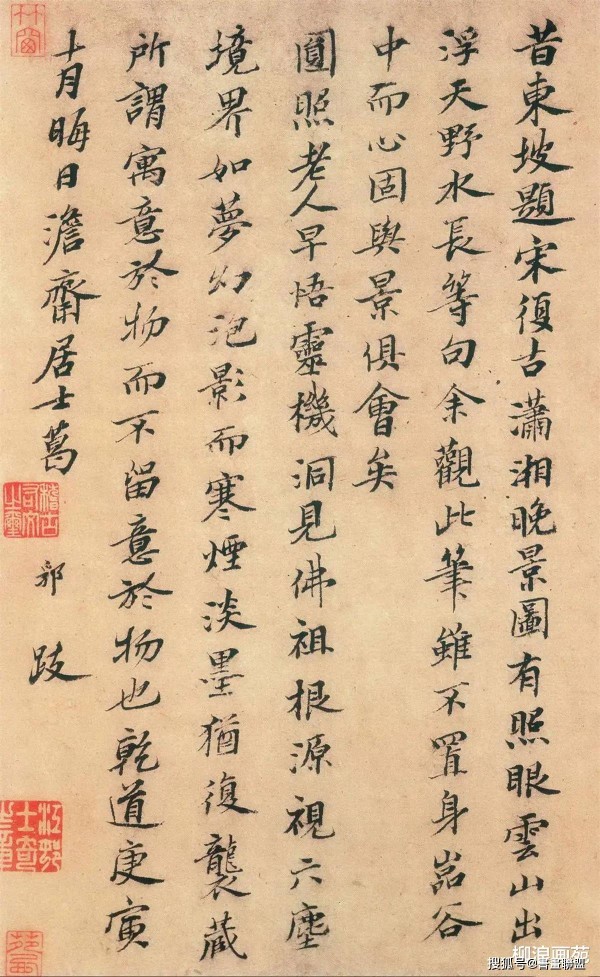 昔東坡題宋復古瀟湘晚景圖有照眼雲山出
浮天野水長等句余觀此筆雖不置身嵓谷
中而心固與景俱會矣
圓照老人早悟靈機洞見佛祖根源視六塵
境界如夢幻泡影而寒煙淡墨猶復襲藏
所謂寓意於物而不留意於物也乾道庚寅
十月晦日澹齋居士葛
郛
跋
稽古
司穴
之璽
柳浪画苑
搜狐号@書畫聯盟